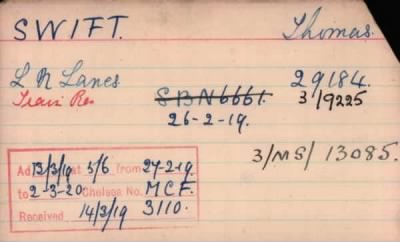 SWIFT. Thomas.
L N Lancs 29184.
Train Res SBN6661. 3/9225
26-2-19.
3/MS/13085.
Ad. 13/3/19 at 5/6 from 27-2-19
to 2-3-20 Chelsea No. M.C.F.
Received 14/3/19 3110.